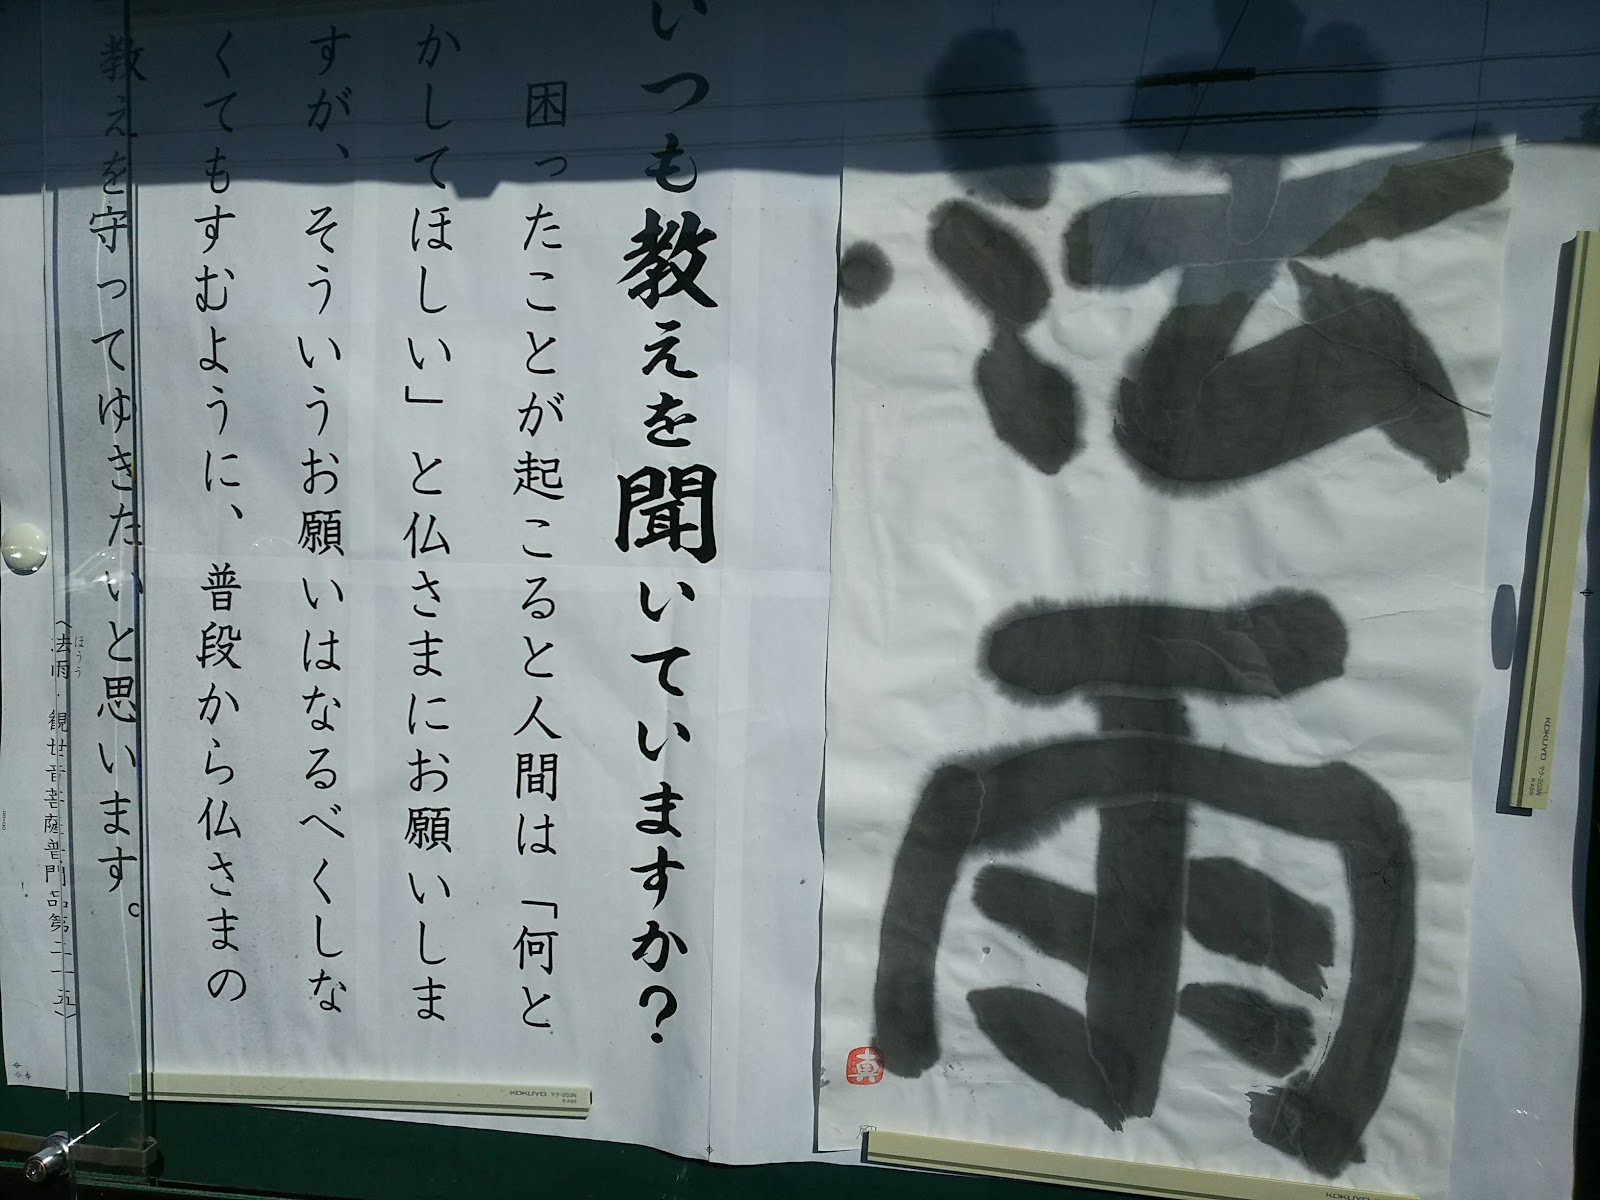 法雨
いつも教えを聞いていますか？
困ったことが起こると人間は「何と
かしてほしい」と仏さまにお願いしま
すが、そういうお願いはなるべくしな
くてもすむように、普段から仏さまの
教えを守ってゆきたいと思います。
〈法雨・観世音菩薩普門品第二十五〉
ほうう
KOKUYO マク-203N
KOKUYO マク-203N
KOKUYO